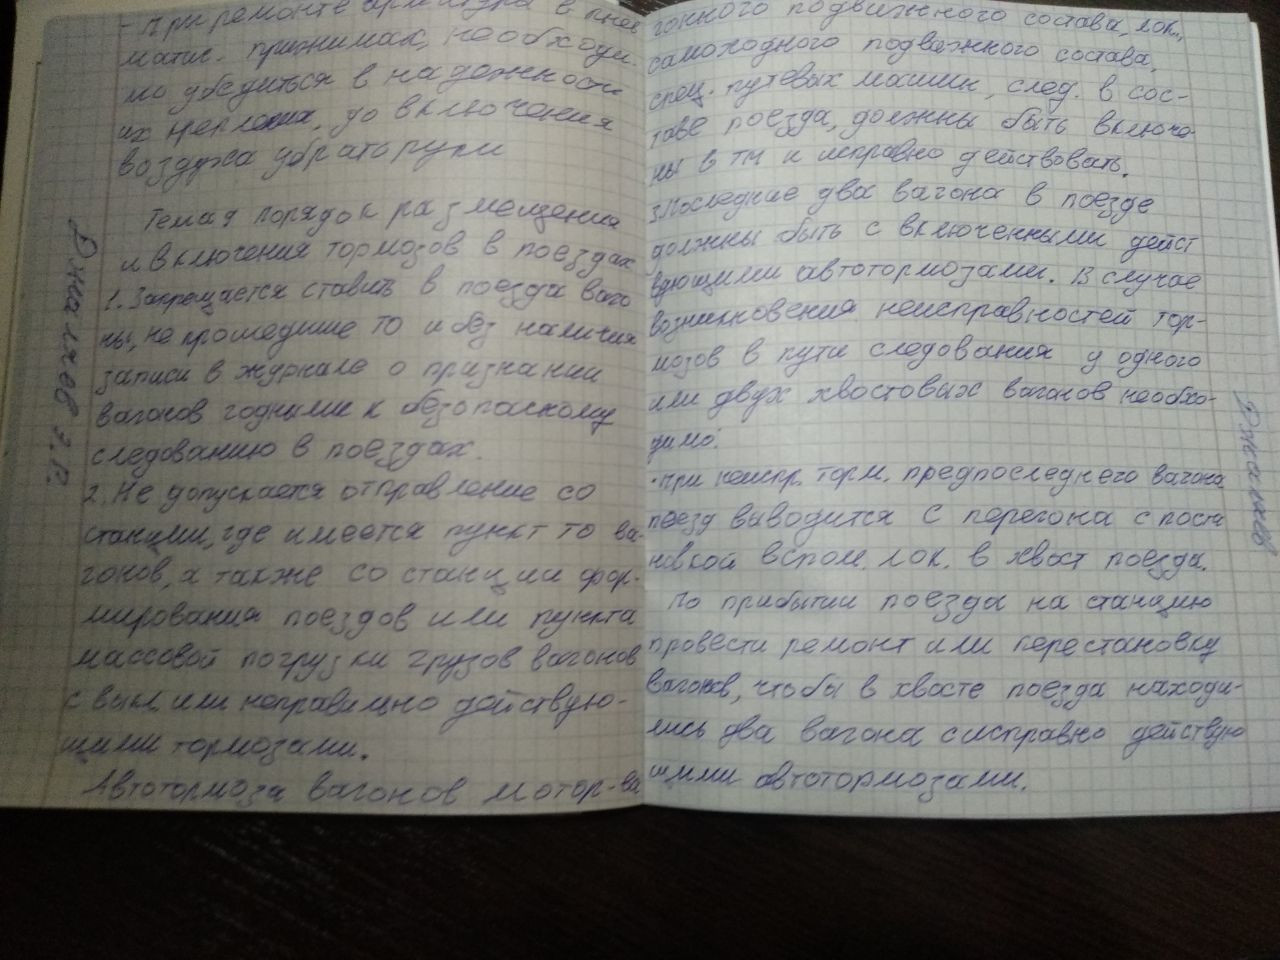 - При ремонте арматуры в пнев
матич. прижимах, необходи-
мо убедиться в надежности
их крепления, до включения
воздуха убрать руки
Тема 9 порядок размещения
и включения тормозов в поездах
1. Запрещается ставить в поезда ваго
ны, не прошедшие ТО и без наличия
записи в журнале о признании
вагонов годными к безопасному
следованию в поездах.
2. Не допускается отправление со
станции, где имеется пункт то ва-
гонов, а также со станции фор-
мирования поездов или пункта
массовой погрузки грузов вагонов
с выкл. или неправильно действую-
щими тормозами.
Автотормоза вагонов мотор-ва
Джалиев З.Р.
гонного подвижного состава, лок.,
самоходного подвижного состава,
спец. путевых машин, след. в сос-
таве поезда, должны быть включе-
ны в тм и исправно действовать.
3. Последние два вагона в поезде
должны быть с включенными дейст
вующими автотормозами. В случае
возникновения неисправностей тор-
мозов в пути следования у одного
или двух хвостовых вагонов необхо-
димо:
• при неиспр. торм. предпоследнего вагона
поезд выводится с перегона с поста
новкой вспом. лок. в хвост поезда.
По прибытии поезда на станцию
провести ремонт или перестановку
вагонов, чтобы в хвосте поезда находи-
лись два вагона с исправно действую
щими автотормозами.
Джалиев